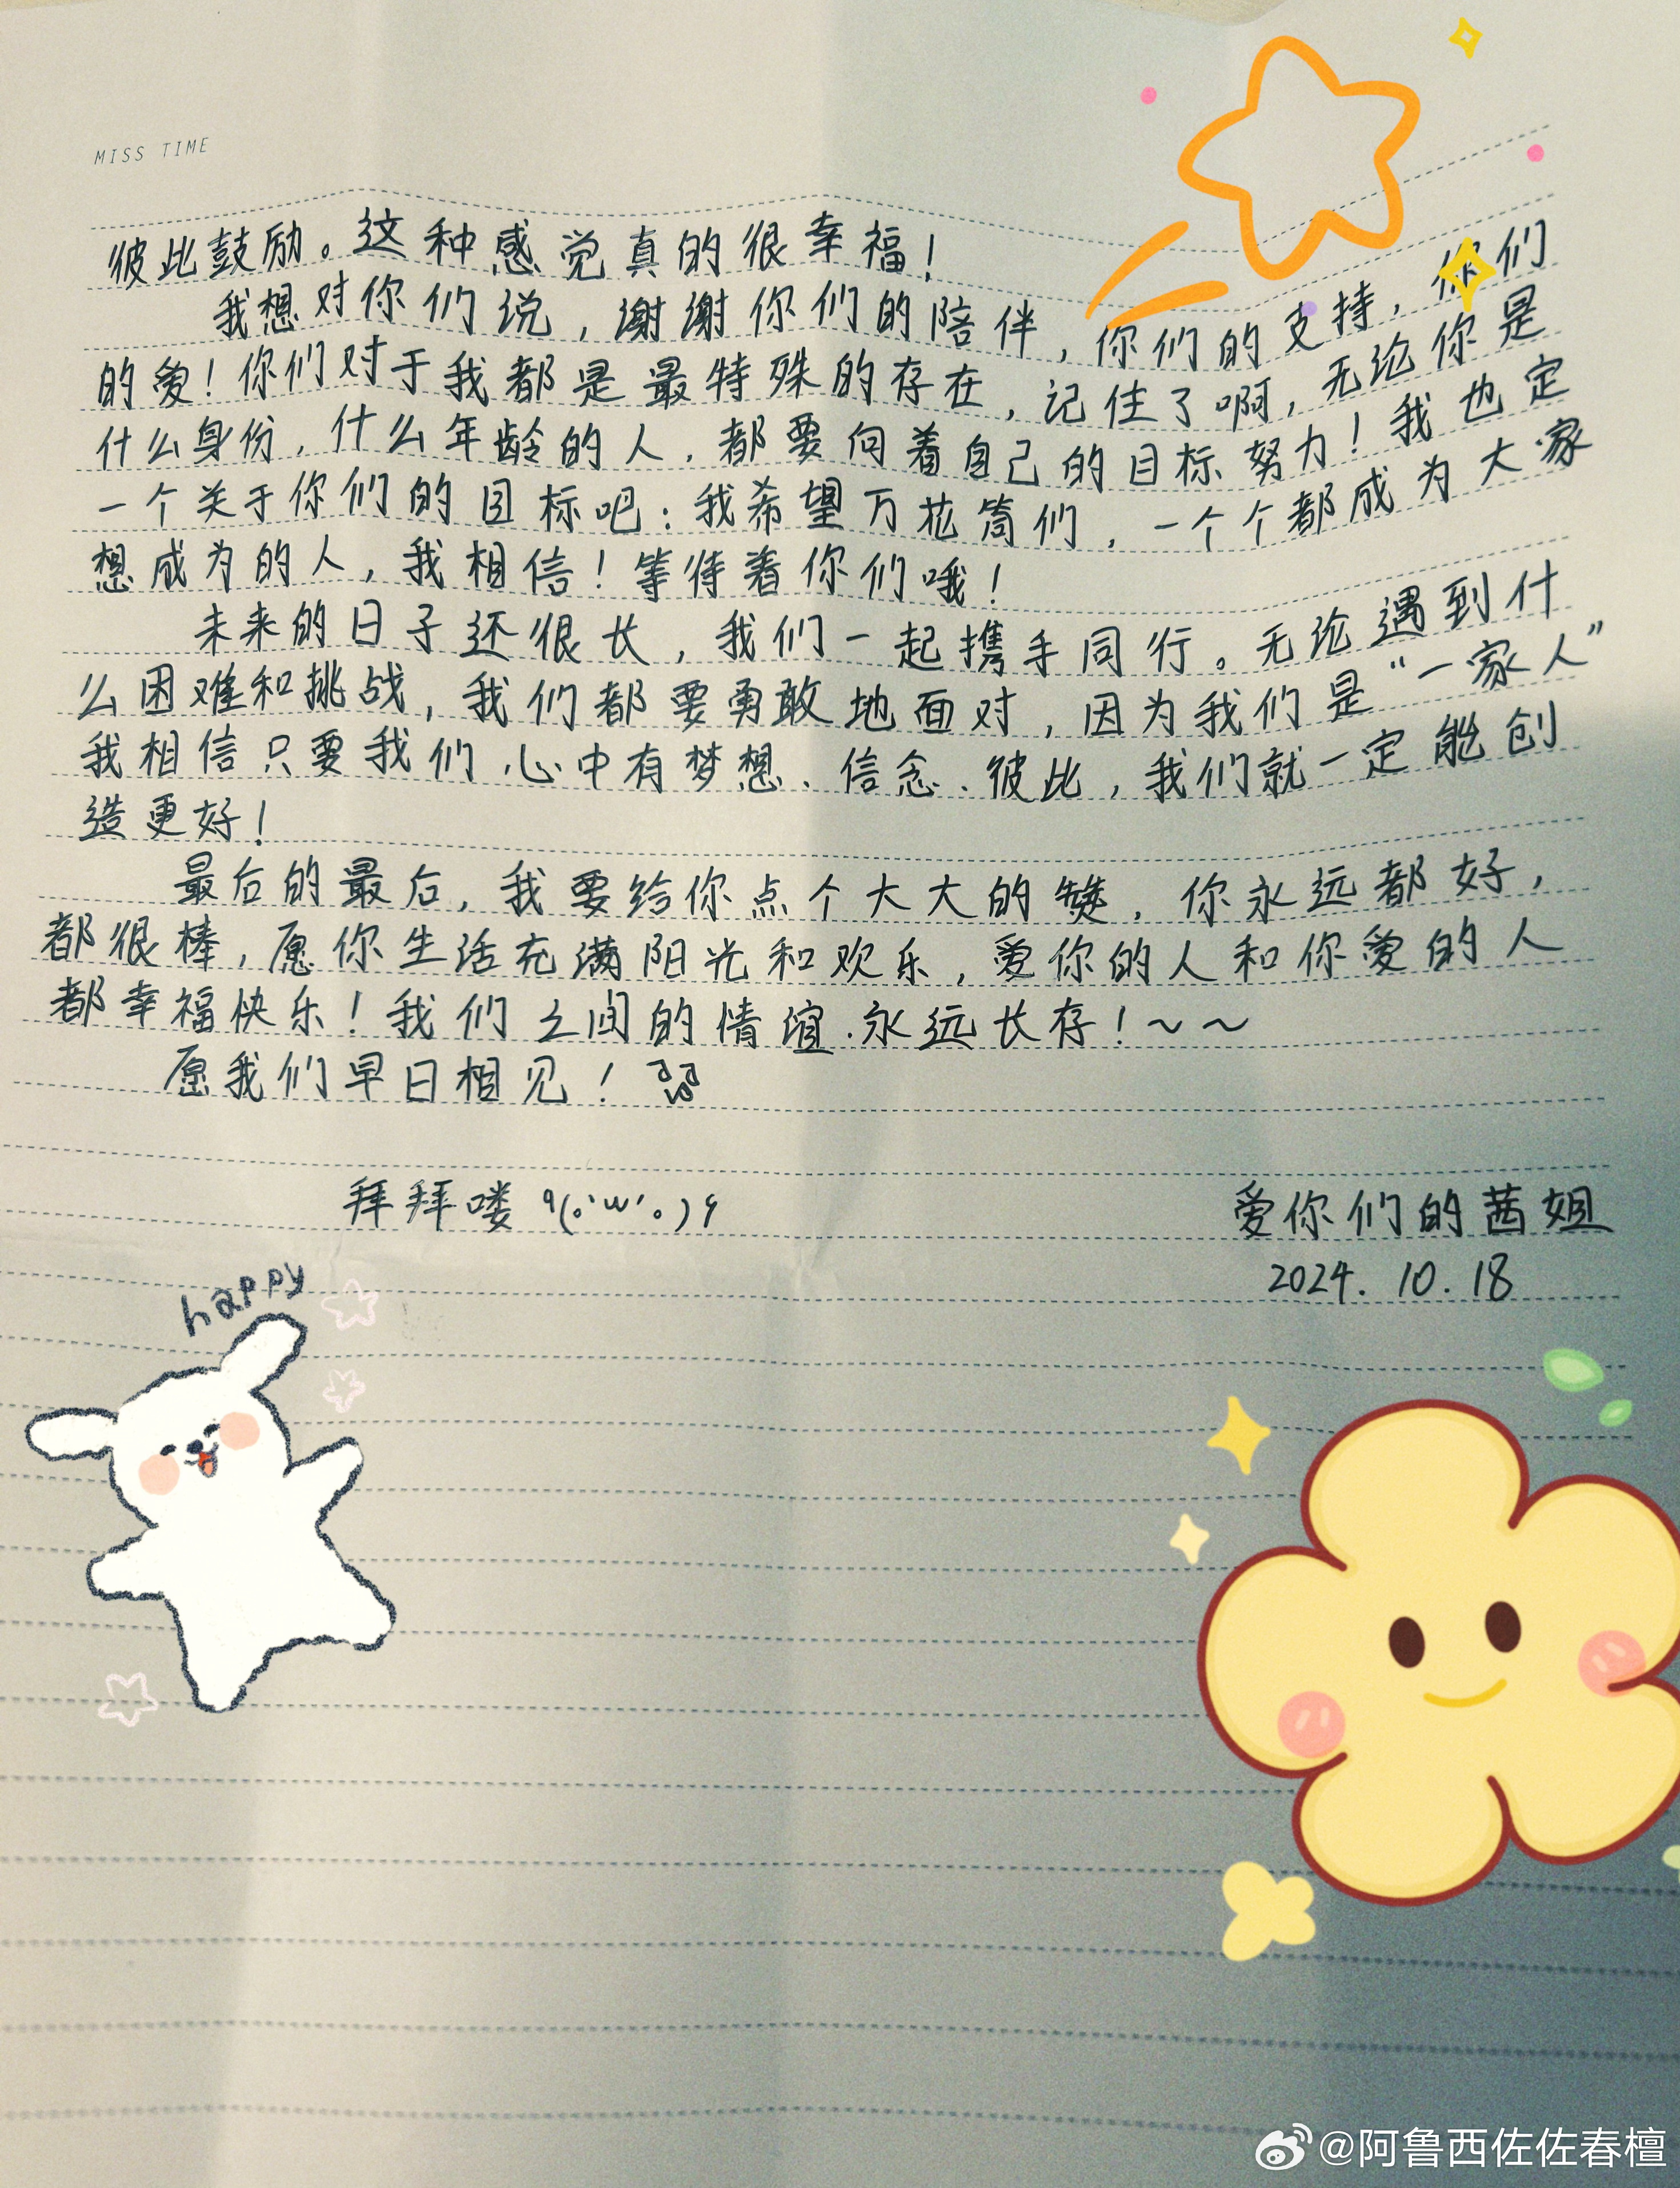 MISS TIME
彼此鼓励。这种感觉真的很幸福！
我想对你们说，谢谢你们的陪伴，你们的支持，你们
的爱！你们对于我都是最特殊的存在，记住了啊，无论你是
什么身份，什么年龄的人，都要向着自己的目标努力！我也定
一个关于你们的目标吧：我希望万花筒们，一个个都成为大家
想成为的人，我相信！等待着你们哦！
未来的日子还很长，我们一起携手同行。无论遇到什
么困难和挑战，我们都要勇敢地面对，因为我们是“一家人”
我相信只要我们心中有梦想、信念、彼此，我们就一定能创
造更好！
最后的最后，我要给你点个大大的赞，你永远都好，
都很棒，愿你生活充满阳光和欢乐，爱你的人和你爱的人
都幸福快乐！我们之间的情谊.永远长存！~~
愿我们早日相见！
拜拜喽 ٩(｡'ω'｡)۶
爱你们的茜姐
2024.10.18
happy
@阿鲁西佐佐春檀